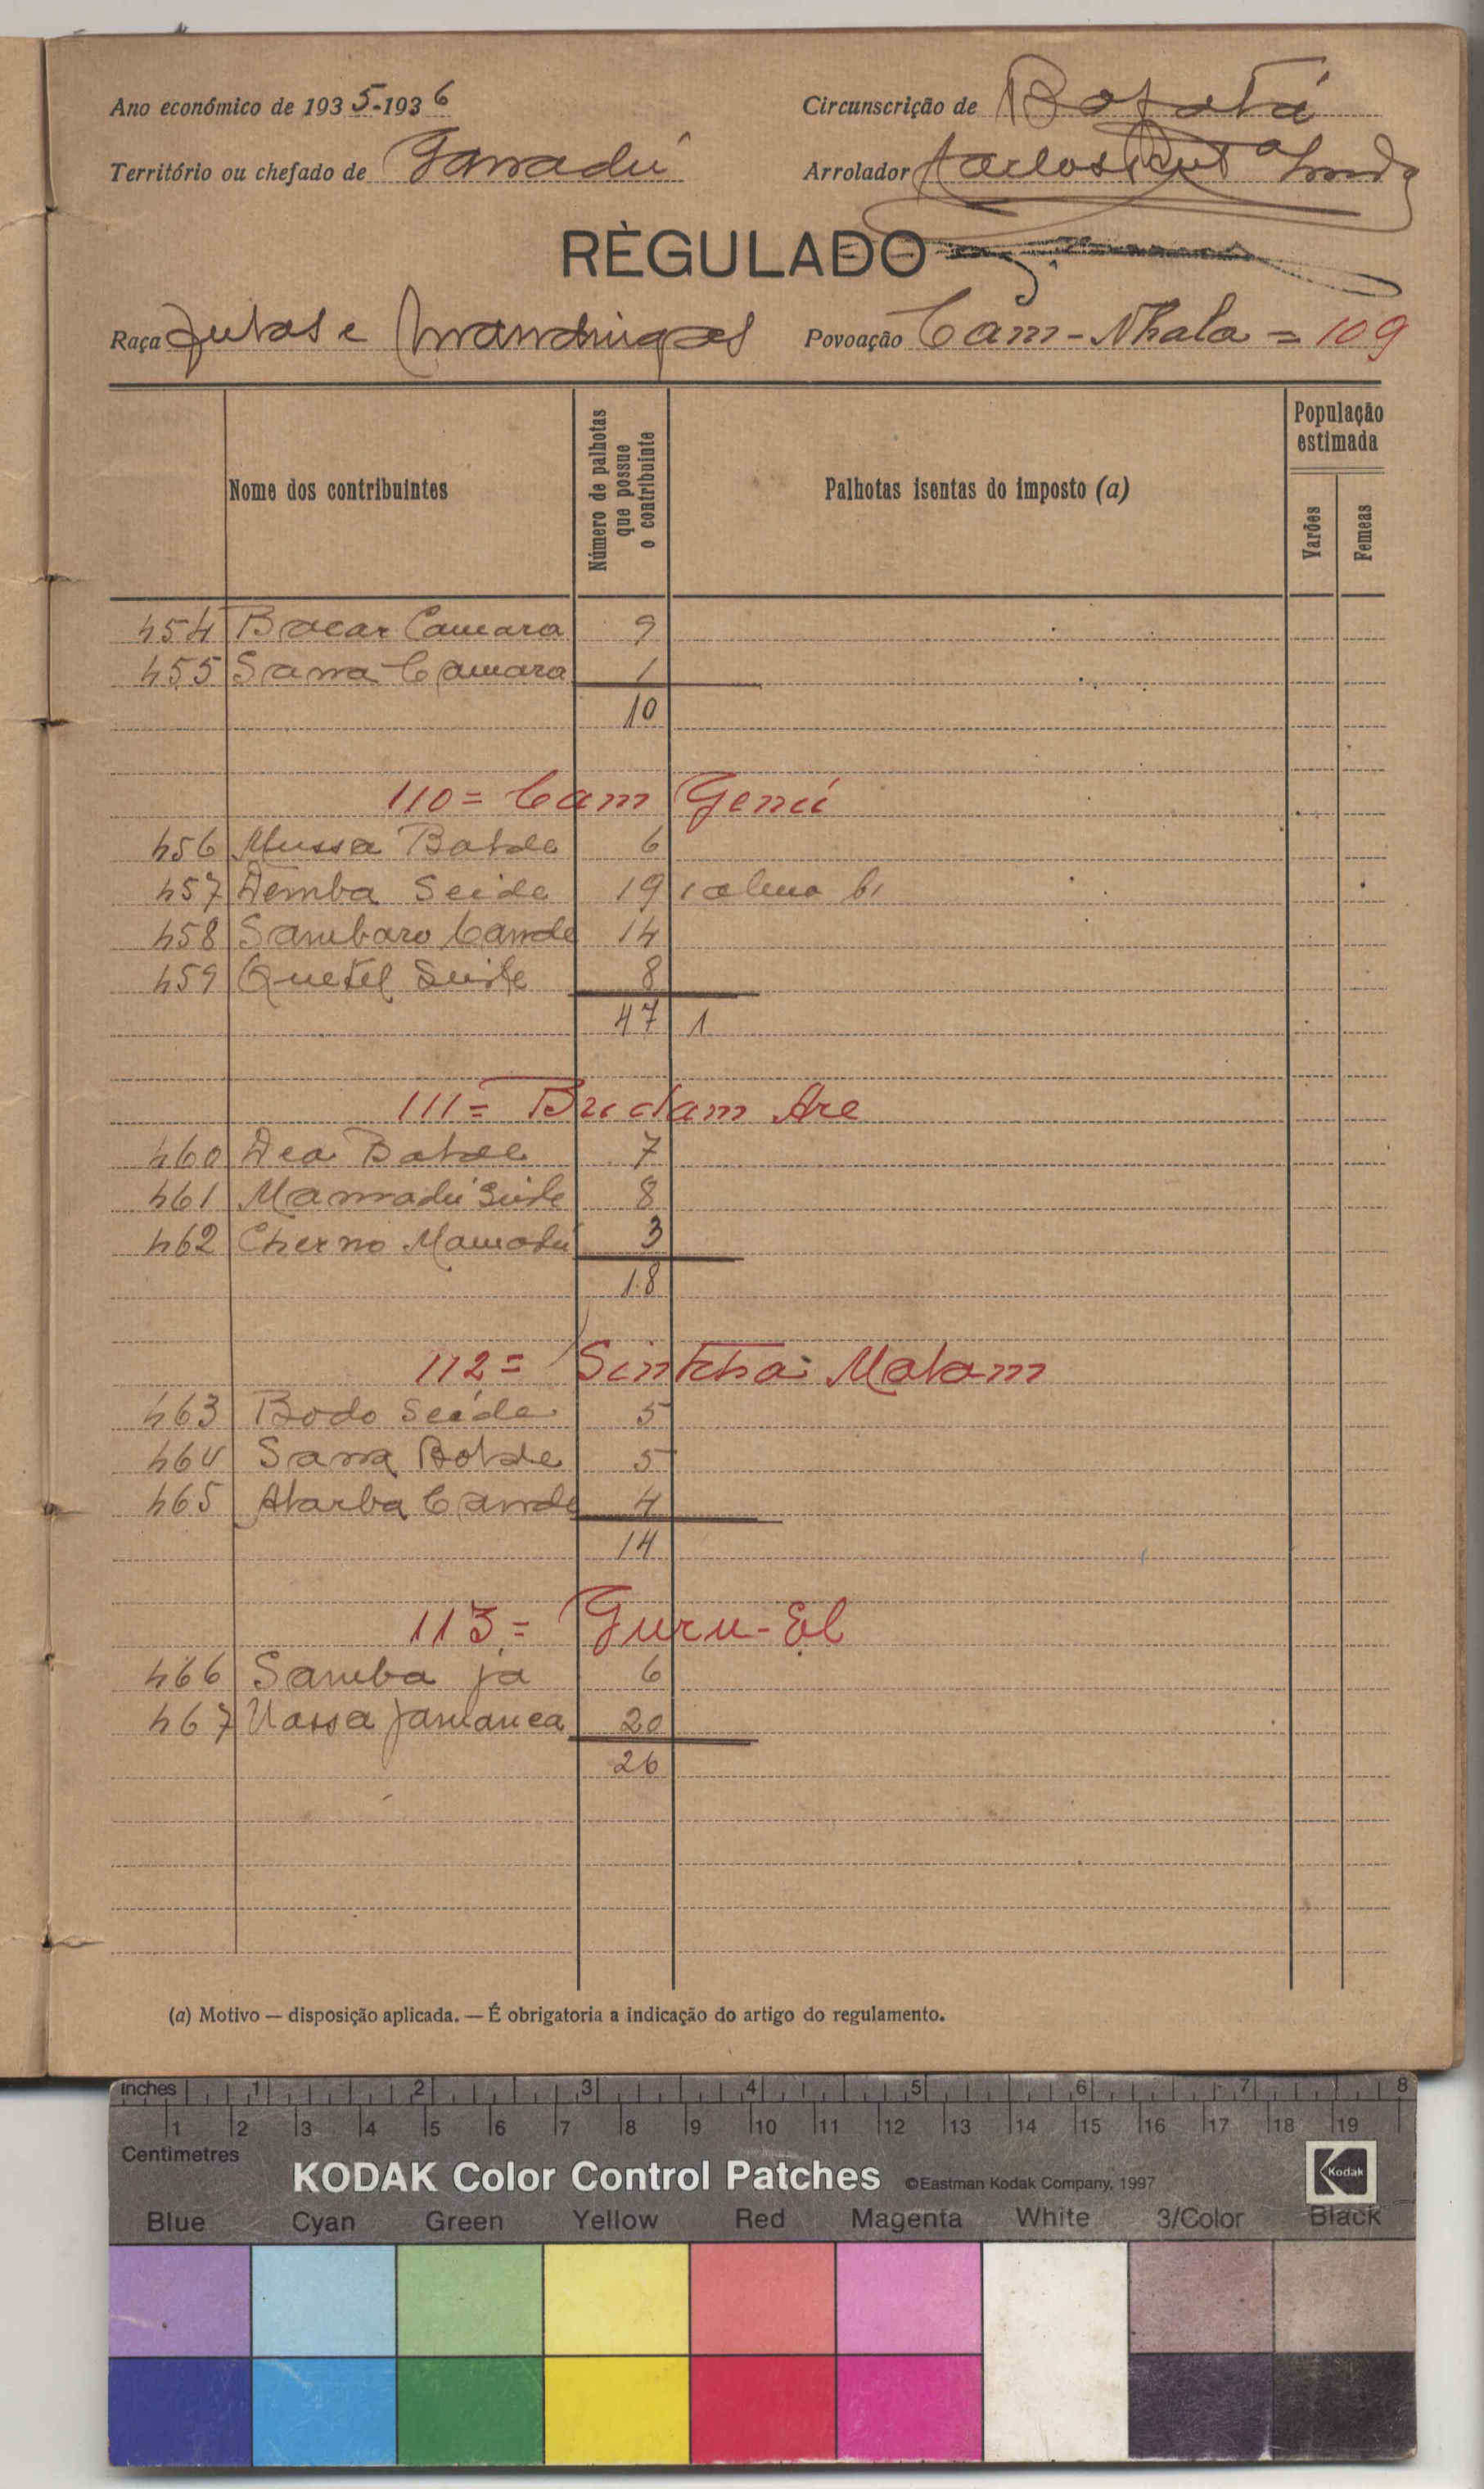 Ano económico de 1935-1936
Circunscrição de Bafatá
Território ou chefado de Ganadú
Arrolador Carlos
RÈGULADO
Raça Fulas e Mandingas
Povoação Cam-Nhala = 109
Nome dos contribuintes
Número de palhotas que possue o contribuinte
Palhotas isentas do imposto (a)
População estimada
Varões
Femeas
454 Bacar Camara 9
455 Sana Camara 1
10
110 = Cam Genú
456 Mussa Balde 6
457 Demba Seide 19 1
458 Sambaro Cande 14
459 Quetel Seide 8
47 1
111 = Brudam Are
460 Dea Balde 7
461 Mamadú Seide 8
462 Cherno Mamadú 3
18
112 = Sintcha Malam
463 Bodo Seide 5
464 Sana Balde 5
465 Cande 4
14
113 = Guru-El
466 Samba já 6
467 Jamanca 20
26
(a) Motivo — disposição aplicada. — É obrigatoria a indicação do artigo do regulamento.
inches 1 2 3 4 5 6 7 8
1 2 3 4 5 6 7 8 9 10 11 12 13 14 15 16 17 18 19
Centimetres
KODAK Color Control Patches ©Eastman Kodak Company, 1997 Kodak
Blue Cyan Green Yellow Red Magenta White 3/Color Black